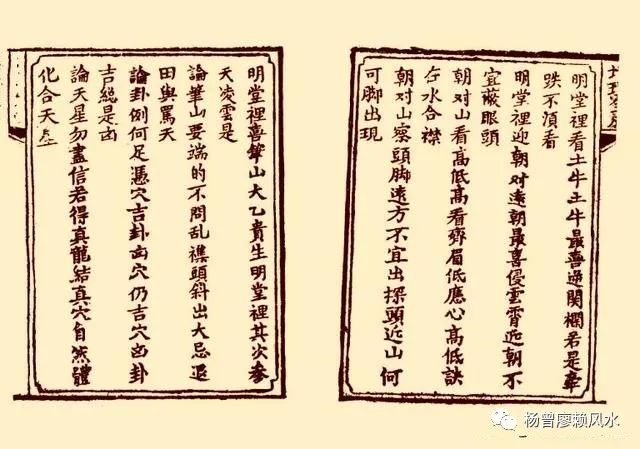 明堂裡看土牛土牛最喜逆関欄若是牽
跌不湏看
明堂裡迎朝对遠朝最喜侵雲霄近朝不
宜蔽眼頭
朝对山看高低高看齊眉低應心高低訣
在水合襟
朝对山察頭脚遠方不宜出探頭近山何
可脚出現
明堂裡喜筆山大乙貴生明堂裡其次叅
天凌雲是
論筆山要端的不問乱襍頭斜出大忌退
田與罵天
論卦例何足憑穴吉卦凶穴仍吉穴凶卦
吉総是凶
論天星勿盡信若得真龍結真穴自然體
化合天星
杨曾廖赖风水